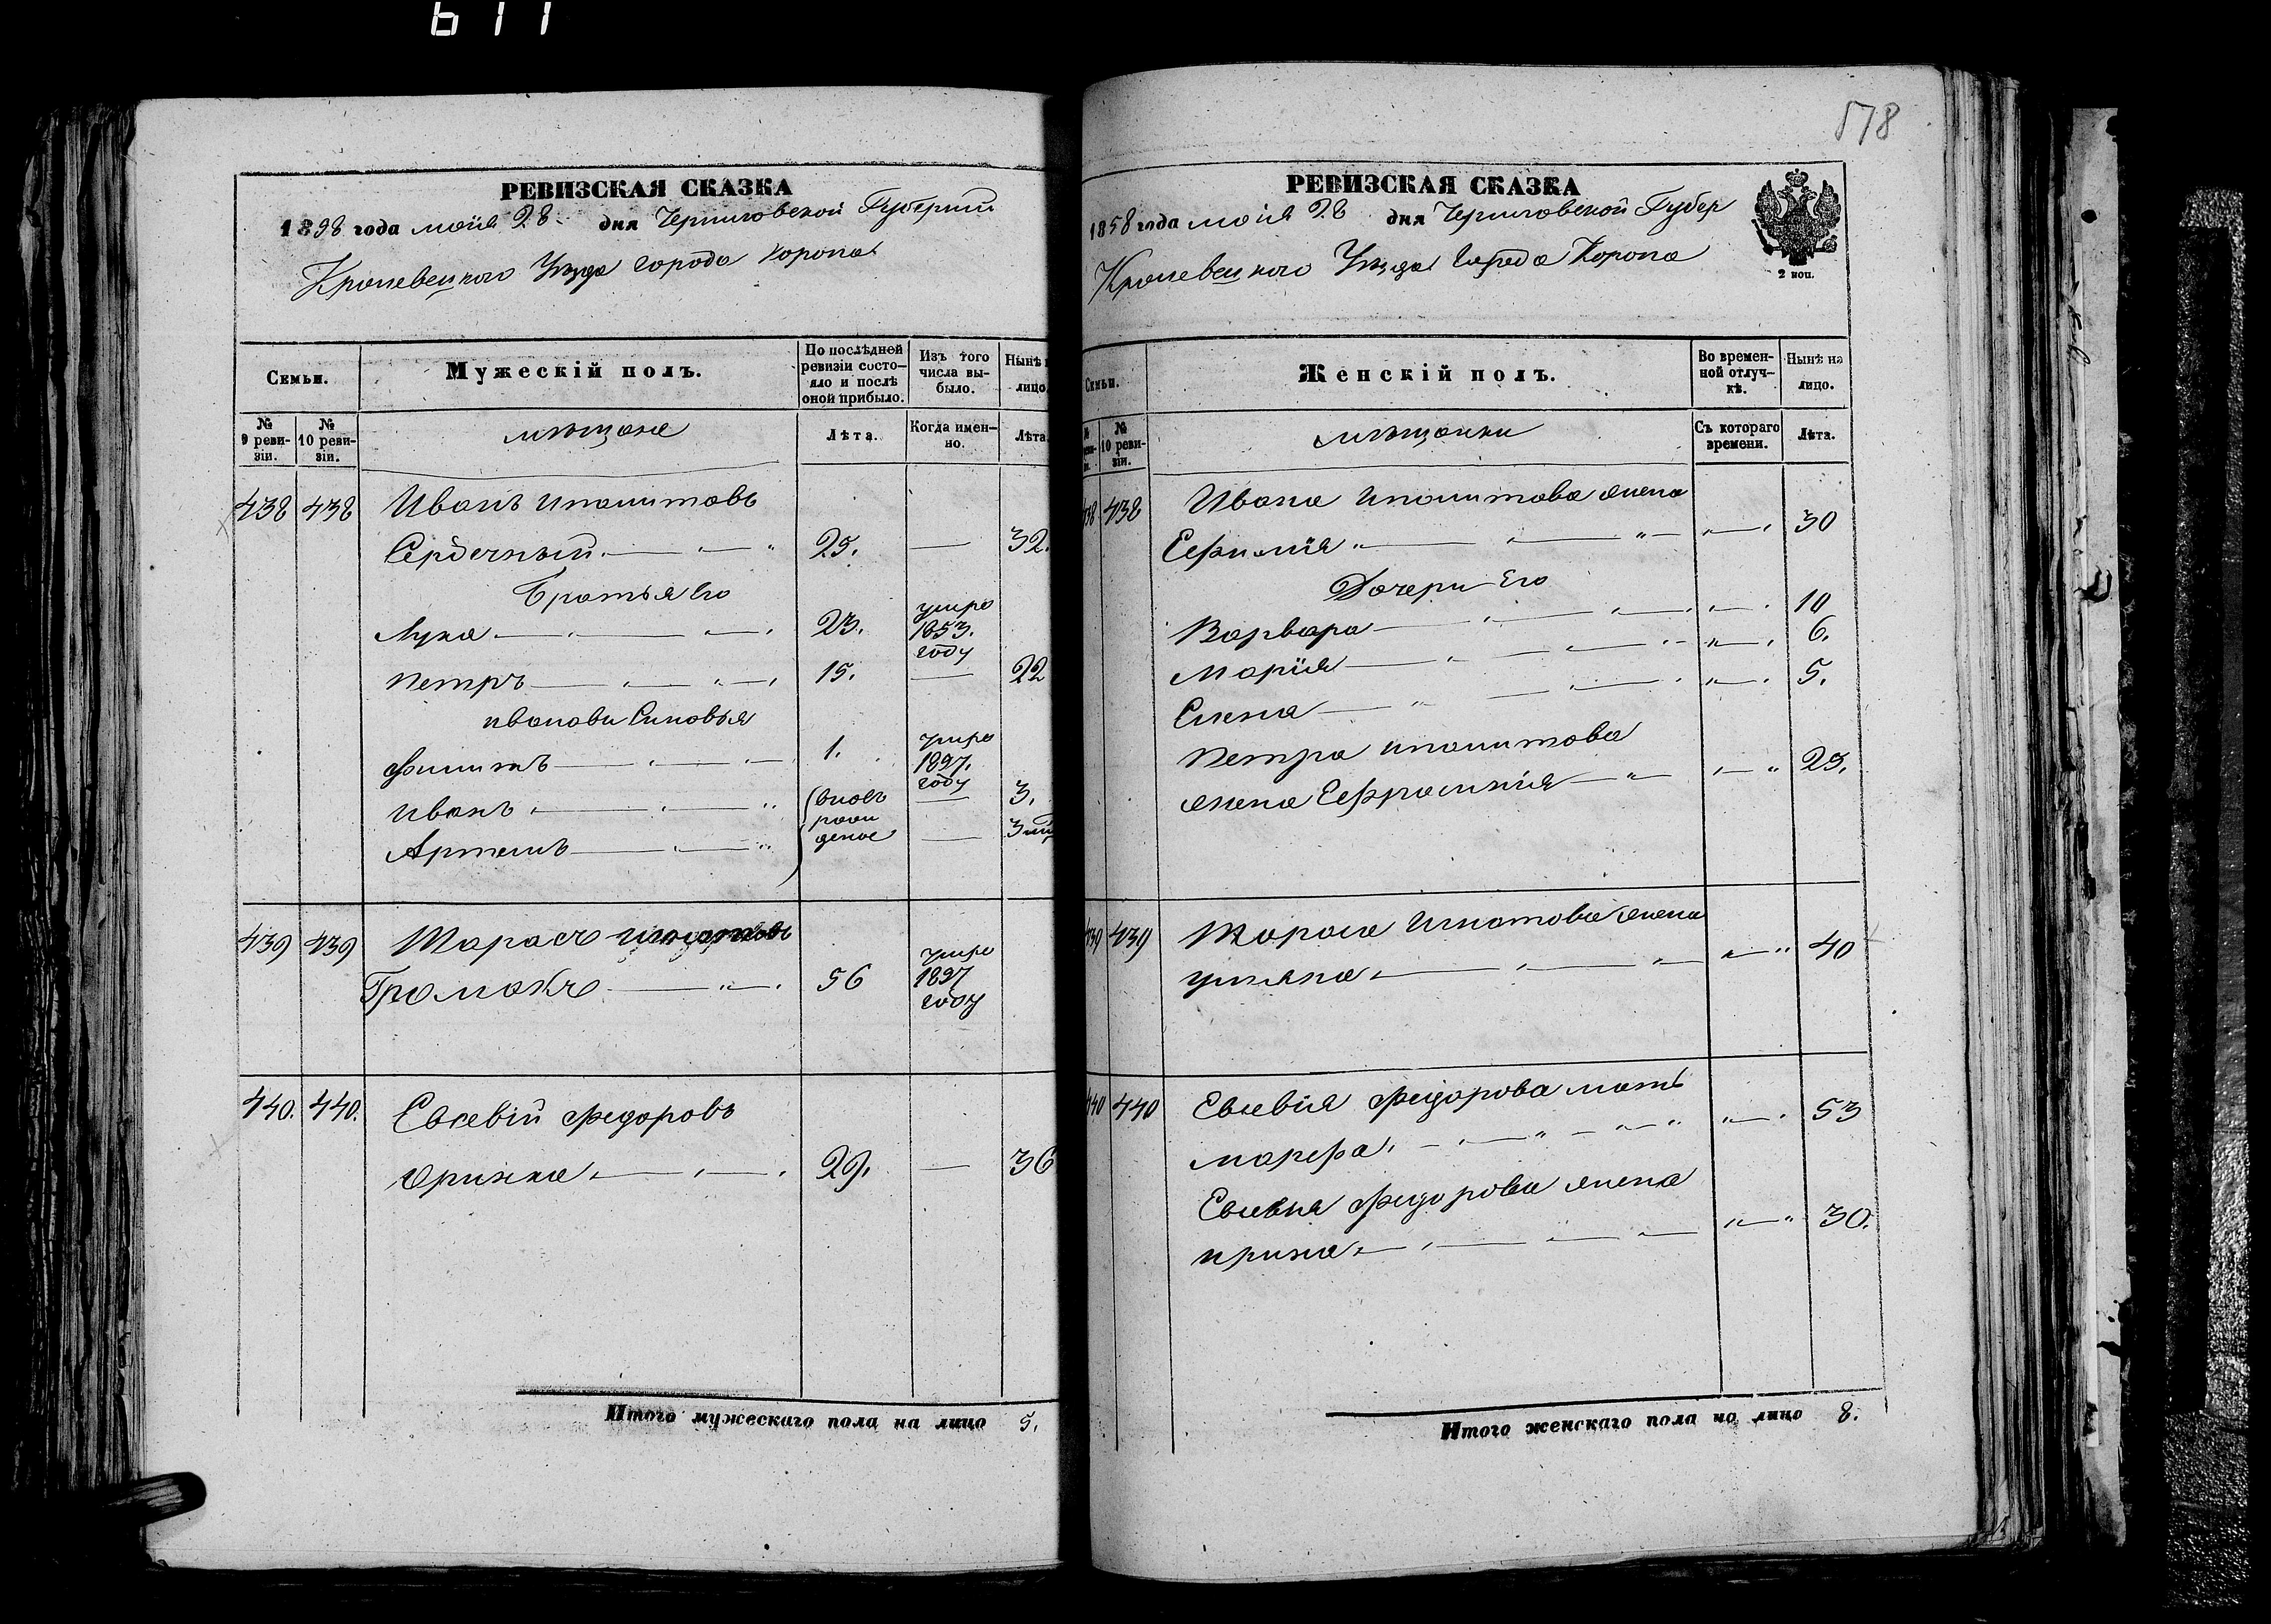 611
РЕВИЗСКАЯ СКАЗКА
1858 года маія 28 дня Черниговской Губерніи
Кролевецкого Уезда города Коропа
Семьи.
Мужескій полъ.
По послѣдней ревизіи состояло и послѣ оной прибыло.
Изъ того числа выбыло.
Нынѣ
лицо.
№ 9 ревизіи.
№ 10 ревизіи.
мѣщане
Лѣта.
Когда именно.
Лѣта.
438 438 Иванъ Иполитовъ
Сердечный 25. — 32.
Братья Его
Лука 23. умре 1853. году
Петръ 15. — 22
Ивановы Сыновья
Филипъ 1. умре 1857. году
Иванъ вновь — 3.
Артемъ рожденое — 3
439 439 Тарасъ Игнатовъ
Громакъ 56 умре 1857 году
440. 440. Евсевій Федоровъ
Оришка 29. — 36
Итого мужескаго пола на лицо 5.
578
РЕВИЗСКАЯ СКАЗКА
1858 года маія 28 дня Черниговской Губер
Кролевецкого Уезда Города Коропа
2 коп.
Семьи.
Женскій полъ.
Во временной отлучкѣ.
Нынѣ на лицо.
№ 10 ревизіи.
мѣщанки
Съ котораго времени.
Лѣта.
438 438 Ивана Иполитова жена
Ефимія 30
Дочери Его
Варвара 10
Марія 6.
Елена 5.
Петра Иполитова
жена Ефросинія 25.
439 439 Тараса Игнатова жена
Уляна 40
440 440 Евсевія Федорова мать
Марфа 53
Евсевія Федорова жена
Ирина 30.
Итого женскаго пола на лицо 8.